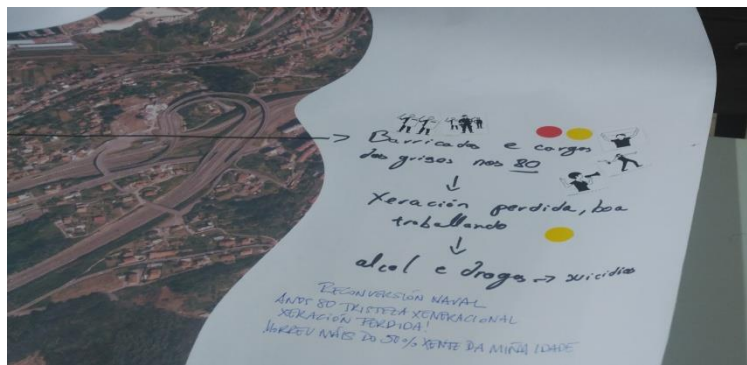 → Barricadas e cargas
dos grises nos 80
↓
Xeración perdida, boa
traballando
↓
alcol e drogas → suicidios
RECONVERSIÓN NAVAL
ANOS 80 TRISTEZA XENERACIONAL
XERACIÓN PERDIDA!
MORREU MÁIS DO 50% XENTE DA MIÑA IDADE